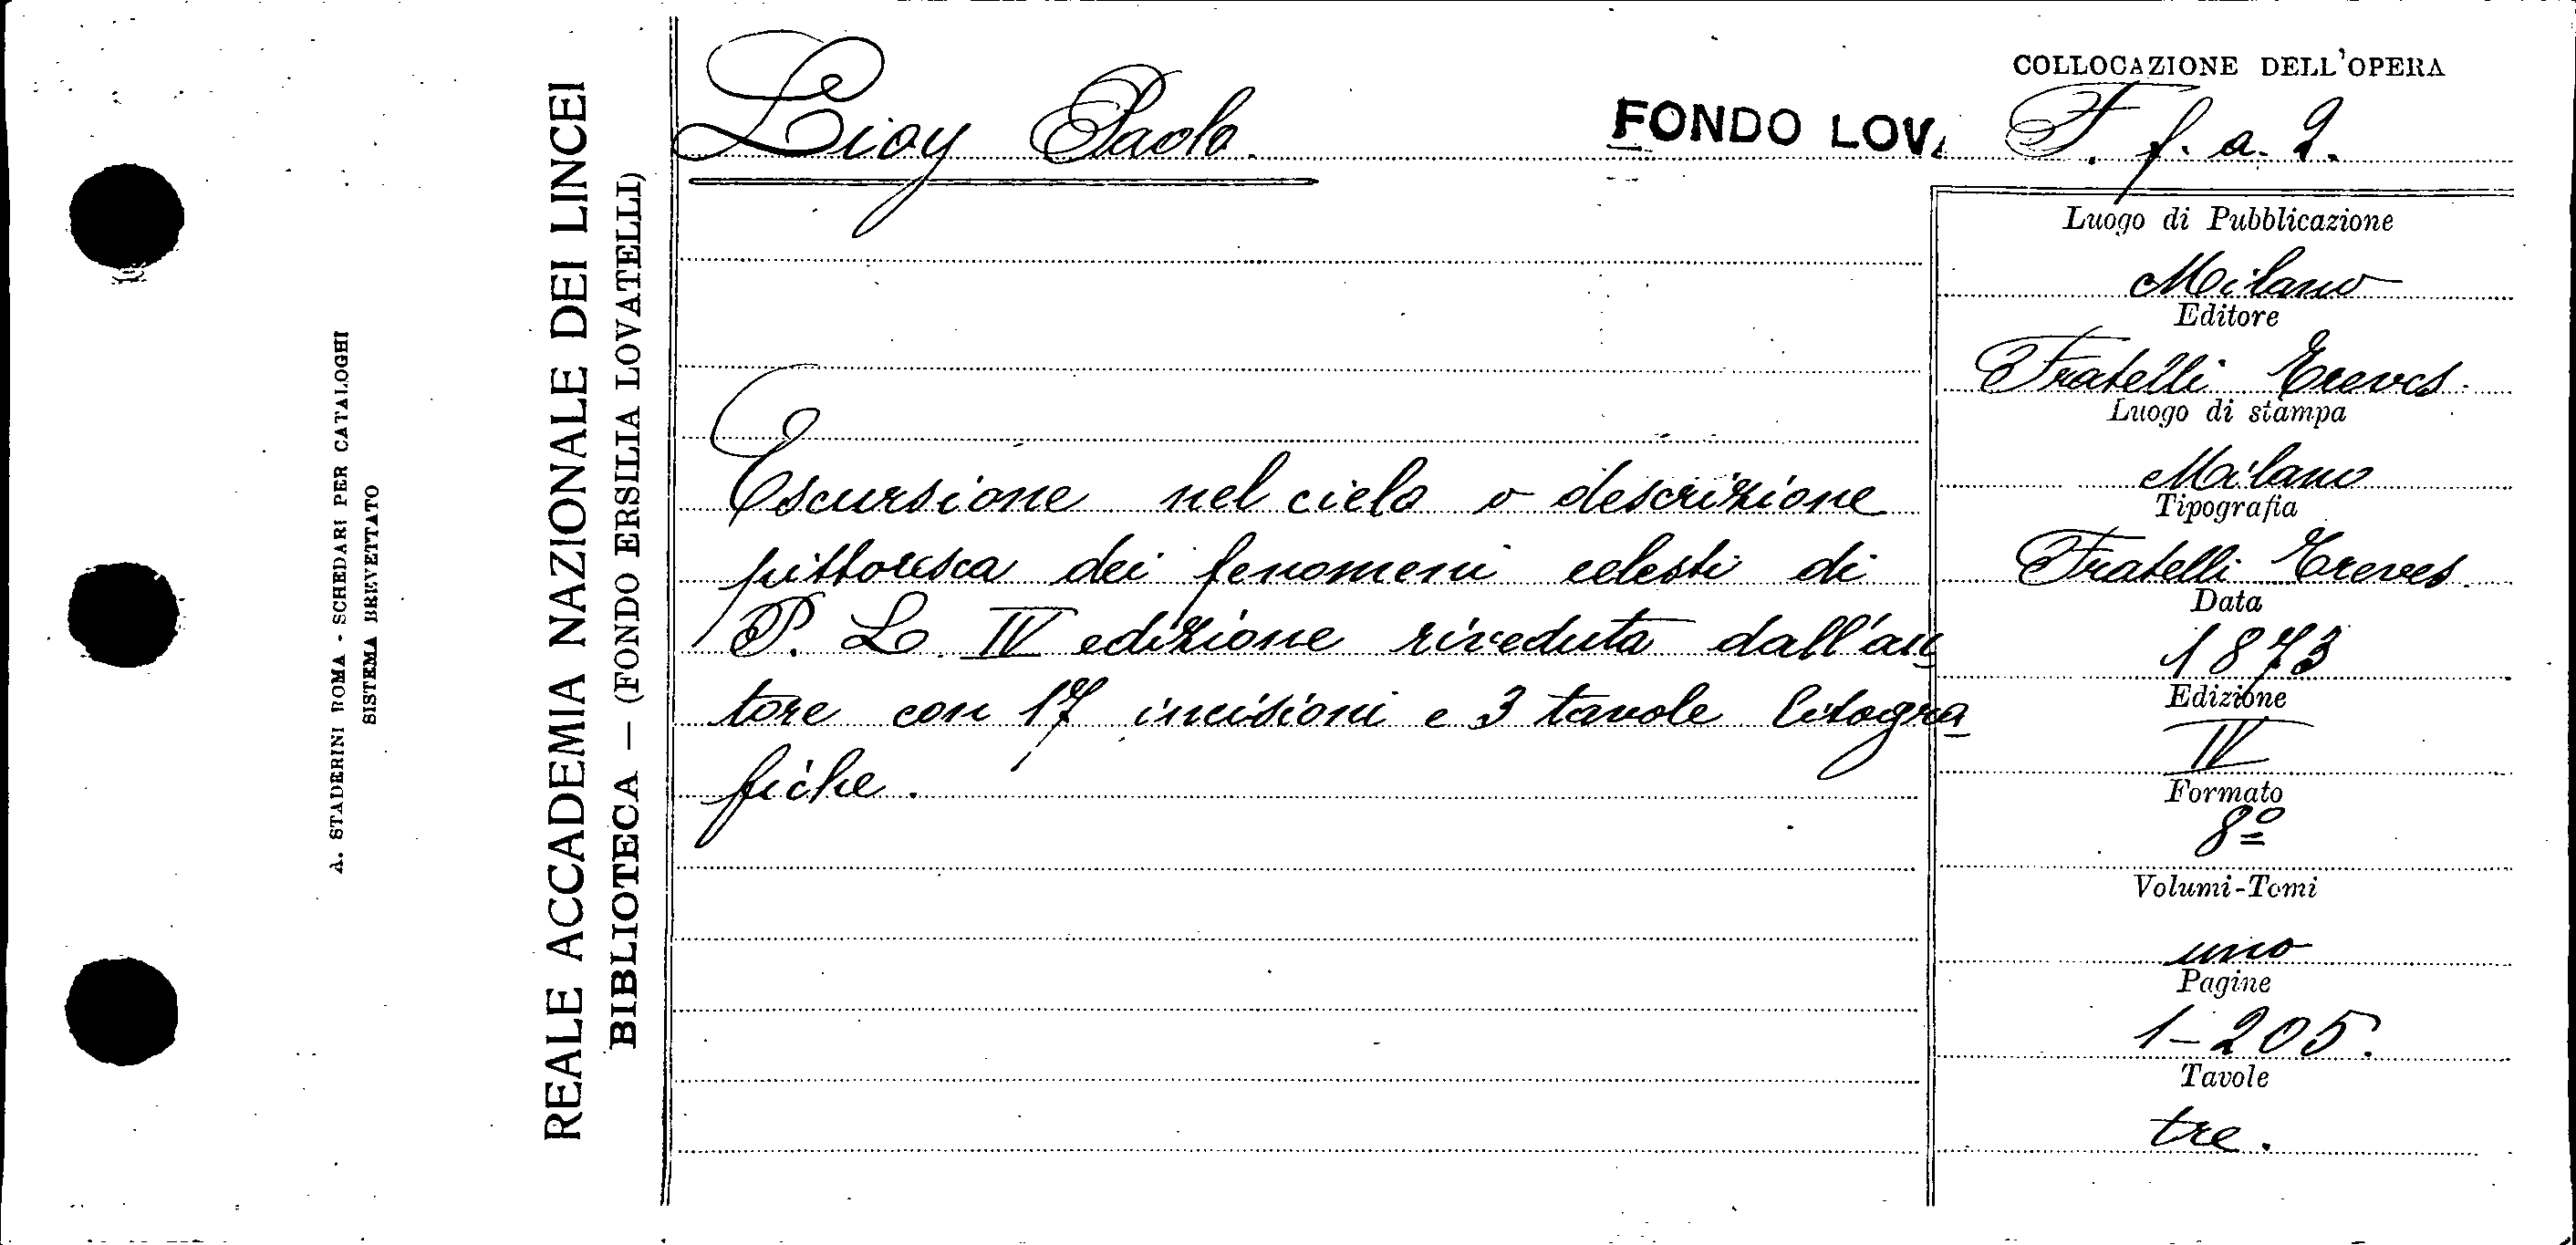 A. STADERINI ROMA - SCHEDARI PER CATALOGHI
SISTEMA BREVETTATO
REALE ACCADEMIA NAZIONALE DEI LINCEI
BIBLIOTECA — (FONDO ERSILIA LOVATELLI)
Lioy Paolo.
FONDO LOV.
COLLOCAZIONE DELL'OPERA
F. f. a. 2.
Escursione nel cielo o descrizione
pittoresca dei fenomeni celesti di
P. L. IV edizione riveduta dall'au
tore con 17 incisioni e 3 tavole litogra
fiche.
Luogo di Pubblicazione
Milano
Editore
Fratelli Treves.
Luogo di stampa
Milano
Tipografia
Fratelli Treves.
Data
1873
Edizione
IV
Formato
8º
Volumi-Tomi
uno
Pagine
1-205.
Tavole
tre.